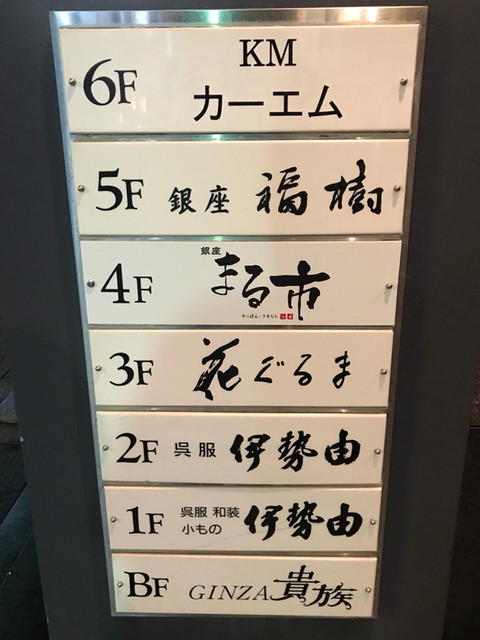 KM
6F カーエム
5F 銀座 福樹
銀座
4F まる市
3F 花ぐるま
2F 呉服 伊勢由
1F 呉服 和装 小もの 伊勢由
BF GINZA 貴族